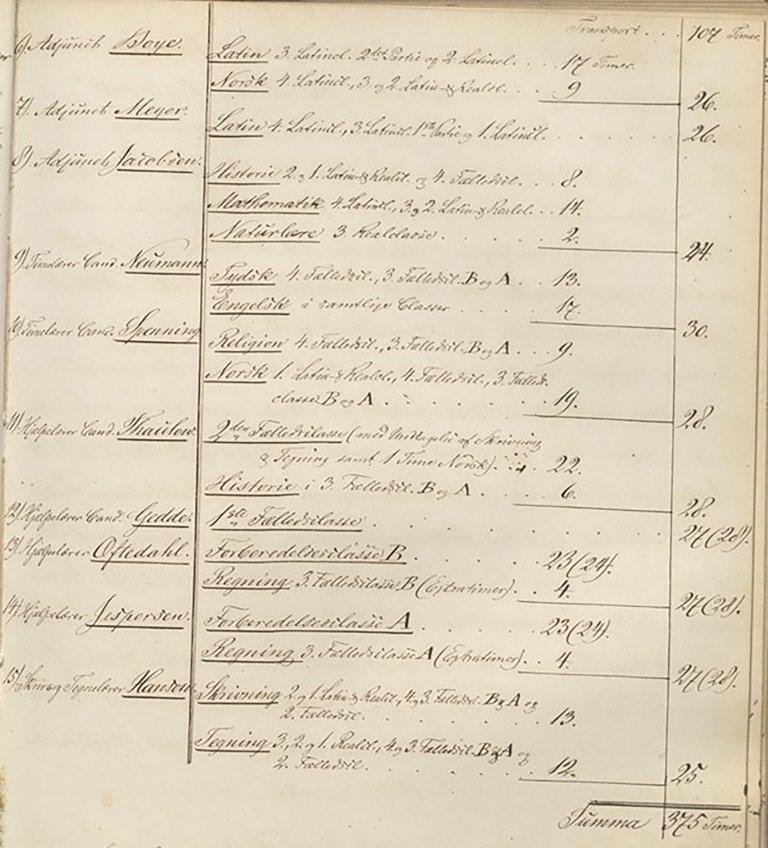 Transport . . . 107 Timer.
6) Adjunct Boye.
Latin 3. Latincl. 2det Partie og 2. Latincl. . . . 17 Timer.
Norsk 4. Latincl., 3. og 2. Latin- & Realcl. . . . 9 26.
7) Adjunct Meyer.
Latin 4. Latincl., 3. Latincl. 1ste Partie og 1. Latincl. . . . . . 26.
8) Adjunct Jacobsen.
Historie 2. og 1. Latin- & Realcl. og 4. Fælledscl. . . . 8.
Mathematik 4. Latincl., 3. og 2. Latin- & Realcl. . . 14.
Naturlære 3. Realclasse . . . . . 2. 24.
9) Timelærer Cand. Neumann.
Tydsk 4. Fælledscl., 3. Fælledscl. B og A . . 13.
Engelsk i samtlige Classer . . . . 17. 30.
10) Timelærer Cand. Spenning
Religion 4. Fælledscl., 3. Fælledscl. B og A . . . 9.
Norsk 1. Latin- & Realcl., 4. Fælledscl., 3. Fælleds-
classe B og A . . . . . 19. 28.
11) Hjælpelærer Cand. Thaulow.
2den Fælledsclasse (med Undtagelse af Skrivning
& Tegning samt 1 Time Norsk) . . . . 22.
Historie i 3. Fælledscl. B og A . . . . 6. 28.
12) Hjælpelærer Cand. Gedde.
1ste Fælledsclasse . . . . . . . . 27 (28).
13) Hjælpelærer Oftedahl.
Forberedelsesclasse B . . . . 23 (24).
Regning 3. Fælledsclasse B (Extratimer) . . 4. 27 (28).
14) Hjælpelærer Jespersen.
Forberedelsesclasse A . . . . 23 (24).
Regning 3. Fælledsclasse A (Extratimer) . . 4. 27 (28).
15) Skrive- og Tegnelærer Hansen
Skrivning 2. og 1. Latin- & Realcl., 4. og 3. Fælledscl. B og A og
2. Fælledscl. . . . . . . 13.
Tegning 3., 2. og 1. Realcl., 4. og 3. Fælledscl. B og A og
2. Fælledscl. . . . . . . 12. 25.
Summa 375 Timer.